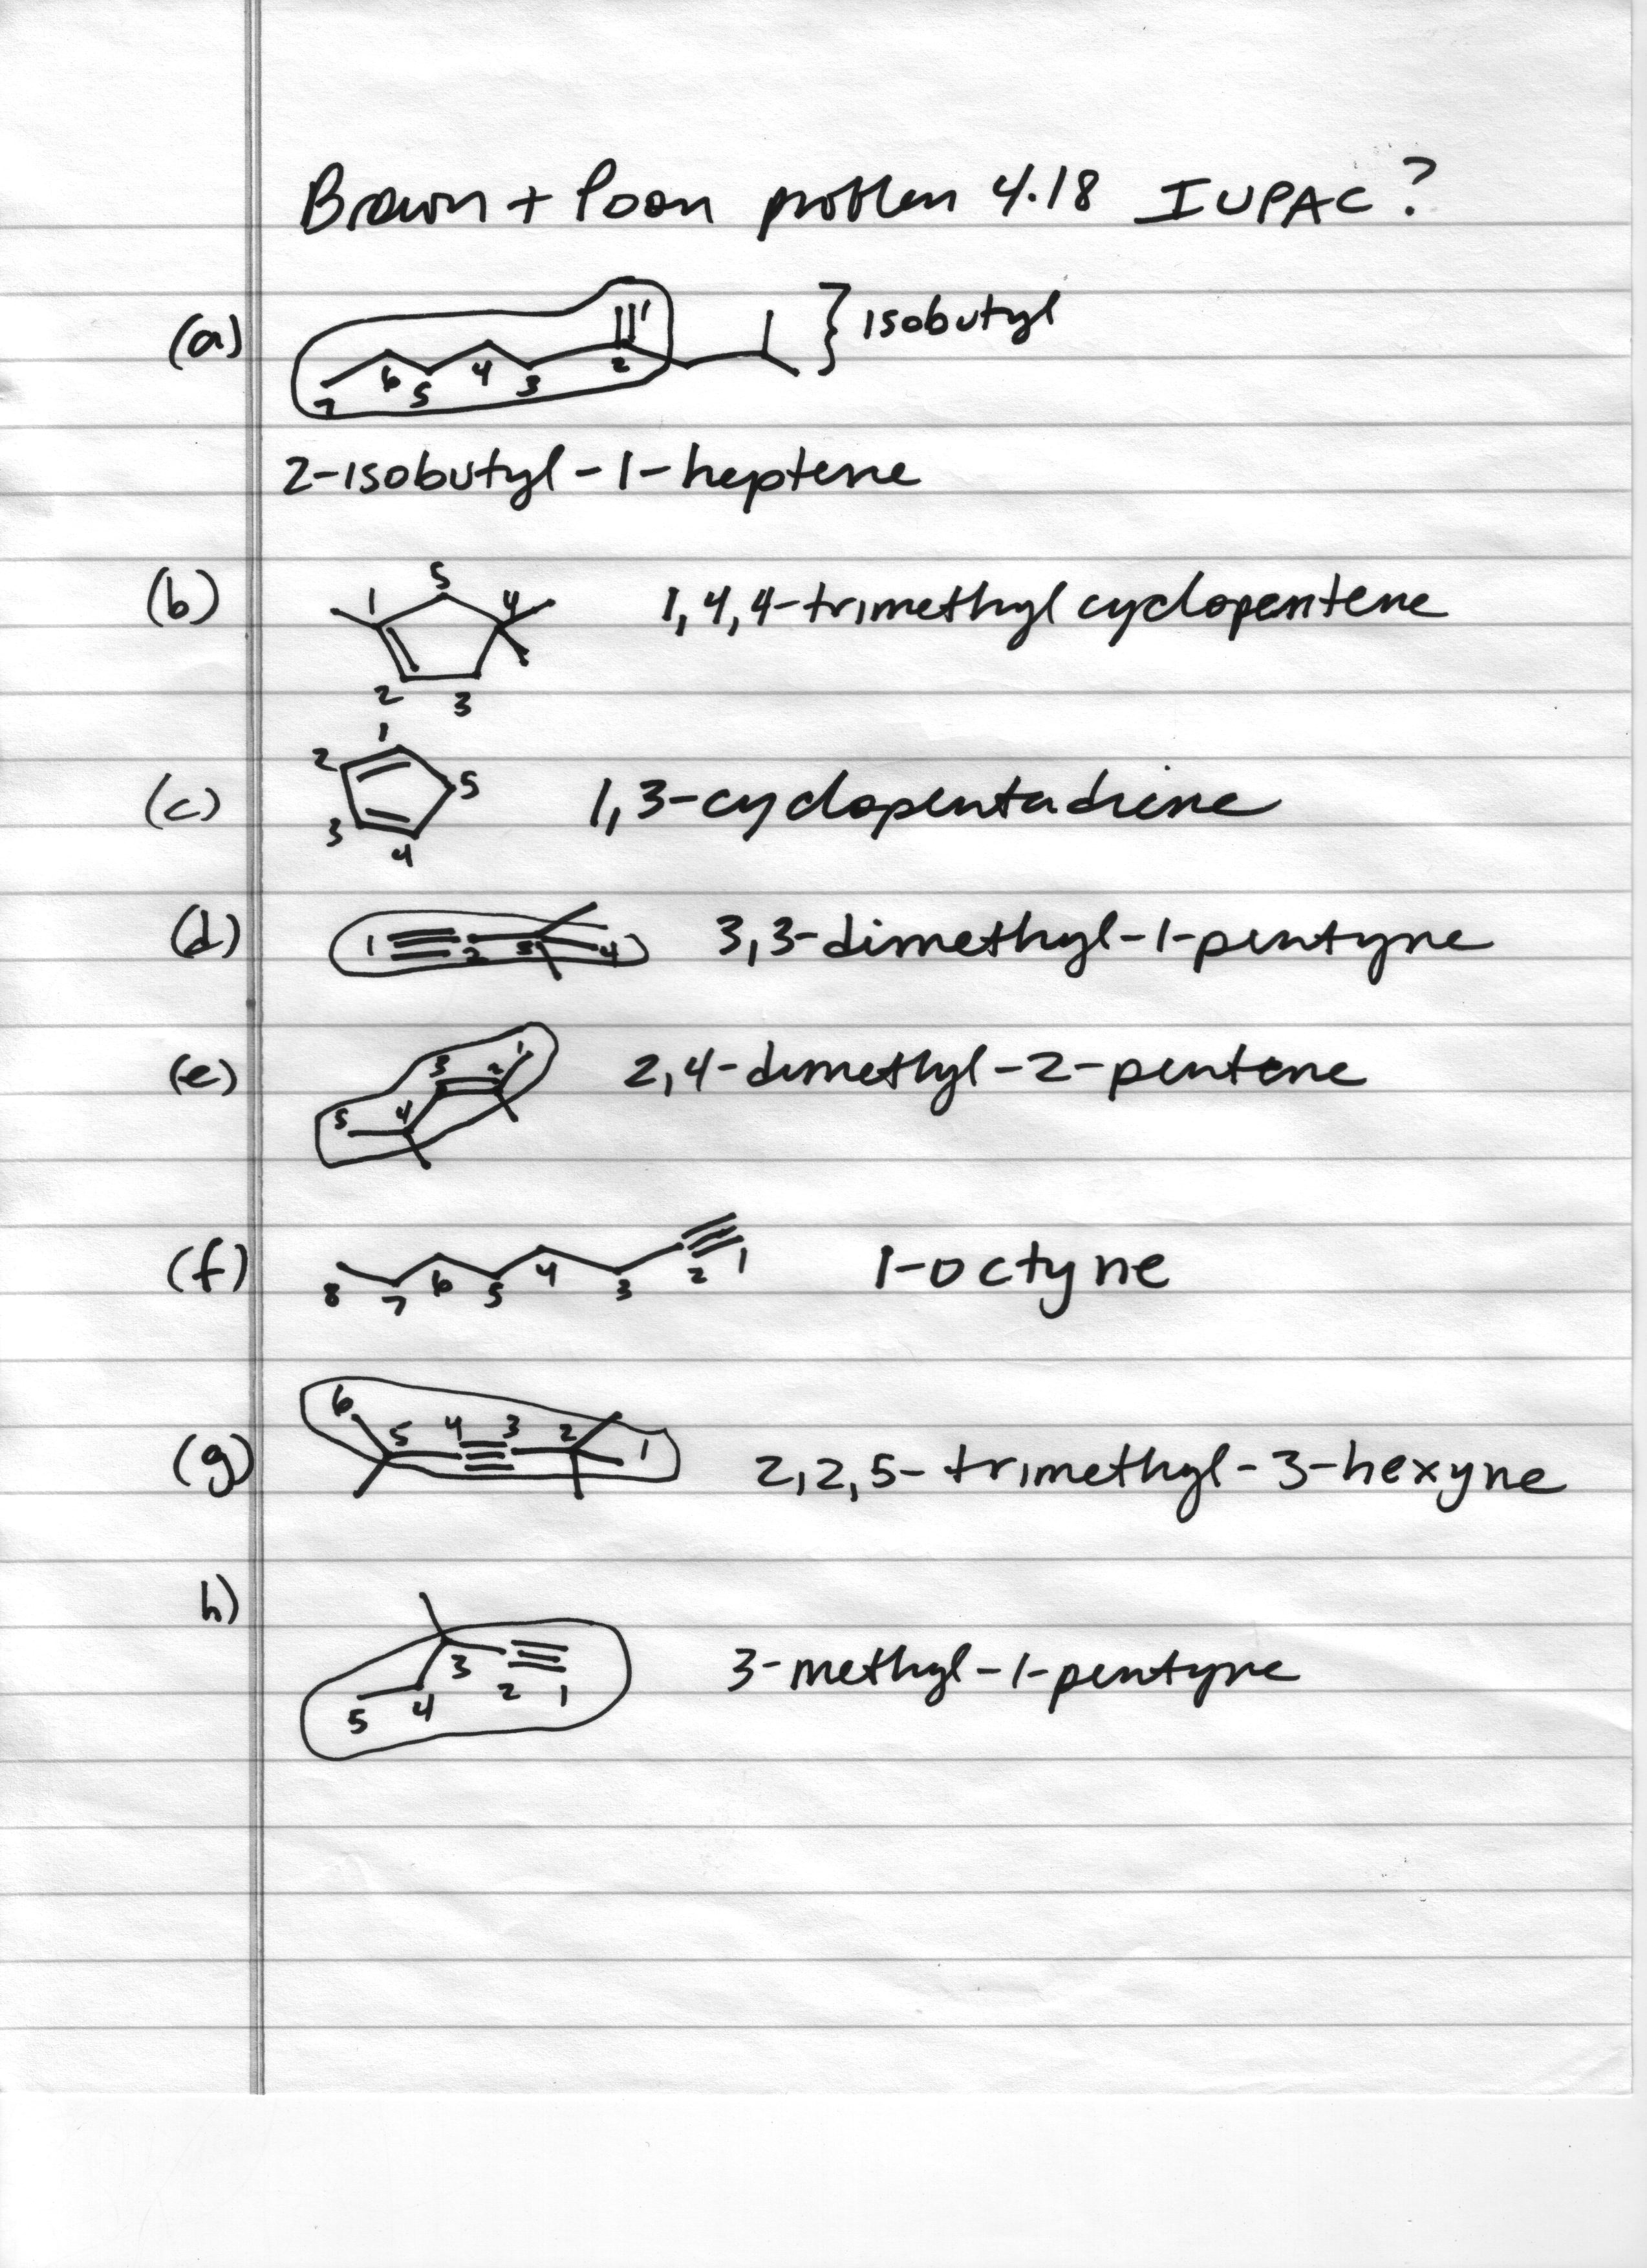 Brown + Poon problem 4.18 IUPAC?
(a) 7 6 5 4 3 2 1 } isobutyl
2-isobutyl-1-heptene
(b) 1 5 4 2 3 1,4,4-trimethyl cyclopentene
(c) 1 2 5 3 4 1,3-cyclopentadiene
(d) 1 2 3 4 3,3-dimethyl-1-pentyne
(e) 5 4 3 2 1 2,4-dimethyl-2-pentene
(f) 8 7 6 5 4 3 2 1 1-octyne
(g) 6 5 4 3 2 1 2,2,5-trimethyl-3-hexyne
h) 5 4 3 2 1 3-methyl-1-pentyne